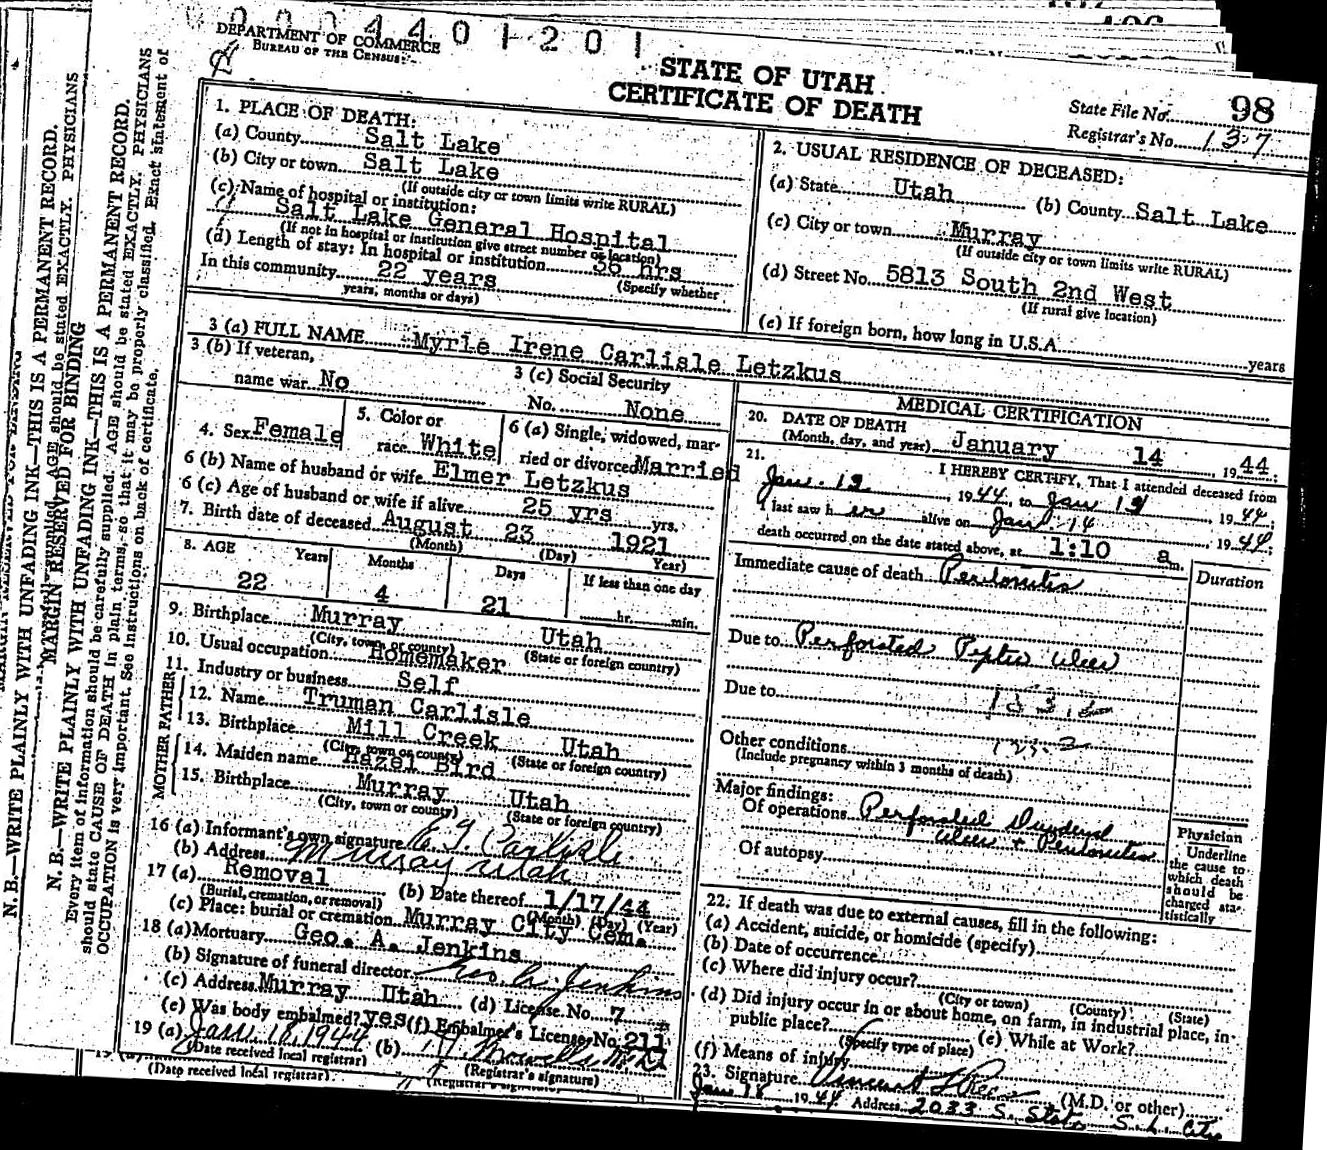 0 0 0 4 4 0 1 2 0 1
DEPARTMENT OF COMMERCE
BUREAU OF THE CENSUS
STATE OF UTAH
CERTIFICATE OF DEATH
State File No. 98
Registrar's No. 137
1. PLACE OF DEATH:
(a) County Salt Lake
(b) City or town Salt Lake
(If outside city or town limits write RURAL)
(c) Name of hospital or institution:
Salt Lake General Hospital
(If not in hospital or institution give street number or location)
(d) Length of stay: In hospital or institution 36 hrs
In this community 22 years (Specify whether
years, months or days)
2. USUAL RESIDENCE OF DECEASED:
(a) State Utah (b) County Salt Lake
(c) City or town Murray
(If outside city or town limits write RURAL)
(d) Street No. 5813 South 2nd West
(If rural give location)
(e) If foreign born, how long in U.S.A. years
3 (a) FULL NAME Myrle Irene Carlisle Letzkus
3 (b) If veteran,
name war No
3 (c) Social Security
No. None
4. Sex Female
5. Color or
race White
6 (a) Single, widowed, mar-
ried or divorced Married
6 (b) Name of husband or wife Elmer Letzkus
6 (c) Age of husband or wife if alive 25 yrs yrs.
7. Birth date of deceased August 23 1921
(Month) (Day) Year)
8. AGE Years Months Days If less than one day
22 4 21 hr. min.
9. Birthplace Murray Utah
(City, town or county) (State or foreign country)
10. Usual occupation Homemaker
11. Industry or business Self
FATHER
12. Name Truman Carlisle
13. Birthplace Mill Creek Utah
(City, town or county) (State or foreign country)
MOTHER
14. Maiden name Hazel Bird
15. Birthplace Murray Utah
(City, town or county) (State or foreign country)
16 (a) Informant's own signature E. T. Carlisle
(b) Address Murray Utah
17 (a) Removal (b) Date thereof 1/17/44
(Burial, cremation, or removal) (Month) (Day) (Year)
(c) Place: burial or cremation Murray City Cem.
18 (a) Mortuary Geo. A. Jenkins
(b) Signature of funeral director Geo. A. Jenkins
(c) Address Murray Utah (d) License No. 7
(e) Was body embalmed? yes (f) Embalmer's License No. 211
19 (a) Jan. 18, 1944 (b)
(Date received local registrar) (Registrar's signature)
(Date received local registrar)
MEDICAL CERTIFICATION
20. DATE OF DEATH
(Month, day, and year) January 14 1944.
21. I HEREBY CERTIFY, That I attended deceased from
Jan. 12, 1944, to Jan 1944;
I last saw her alive on Jan. 14 1944;
death occurred on the date stated above, at 1:10 a m.
Duration
Immediate cause of death Peritonitis
Due to Perforated Peptic Ulcer
Due to
Other conditions
(Include pregnancy within 3 months of death)
Major findings:
Of operations Perforated Duodenal
Ulcer + Peritonitis
Of autopsy
Physician
Underline
the cause to
which death
should be
charged sta-
tistically
22. If death was due to external causes, fill in the following:
(a) Accident, suicide, or homicide (specify)
(b) Date of occurrence
(c) Where did injury occur?
(City or town) (County) (State)
(d) Did injury occur in or about home, on farm, in industrial place, in
public place? (e) While at Work?
(Specify type of place)
(f) Means of injury
23. Signature Vincent L Rees (M.D. or other)
Jan 18 1944 Address 2033 S. State S. L. City
N. B.—WRITE PLAINLY WITH UNFADING INK—THIS IS A PERMANENT RECORD.
MARGIN RESERVED FOR BINDING
N. B.—WRITE PLAINLY WITH UNFADING INK—THIS IS A PERMANENT RECORD.
Every item of information should be carefully supplied. AGE should be stated EXACTLY. PHYSICIANS
should state CAUSE OF DEATH in plain terms, so that it may be properly classified. Exact statement of
OCCUPATION is very important. See instructions on back of certificate.